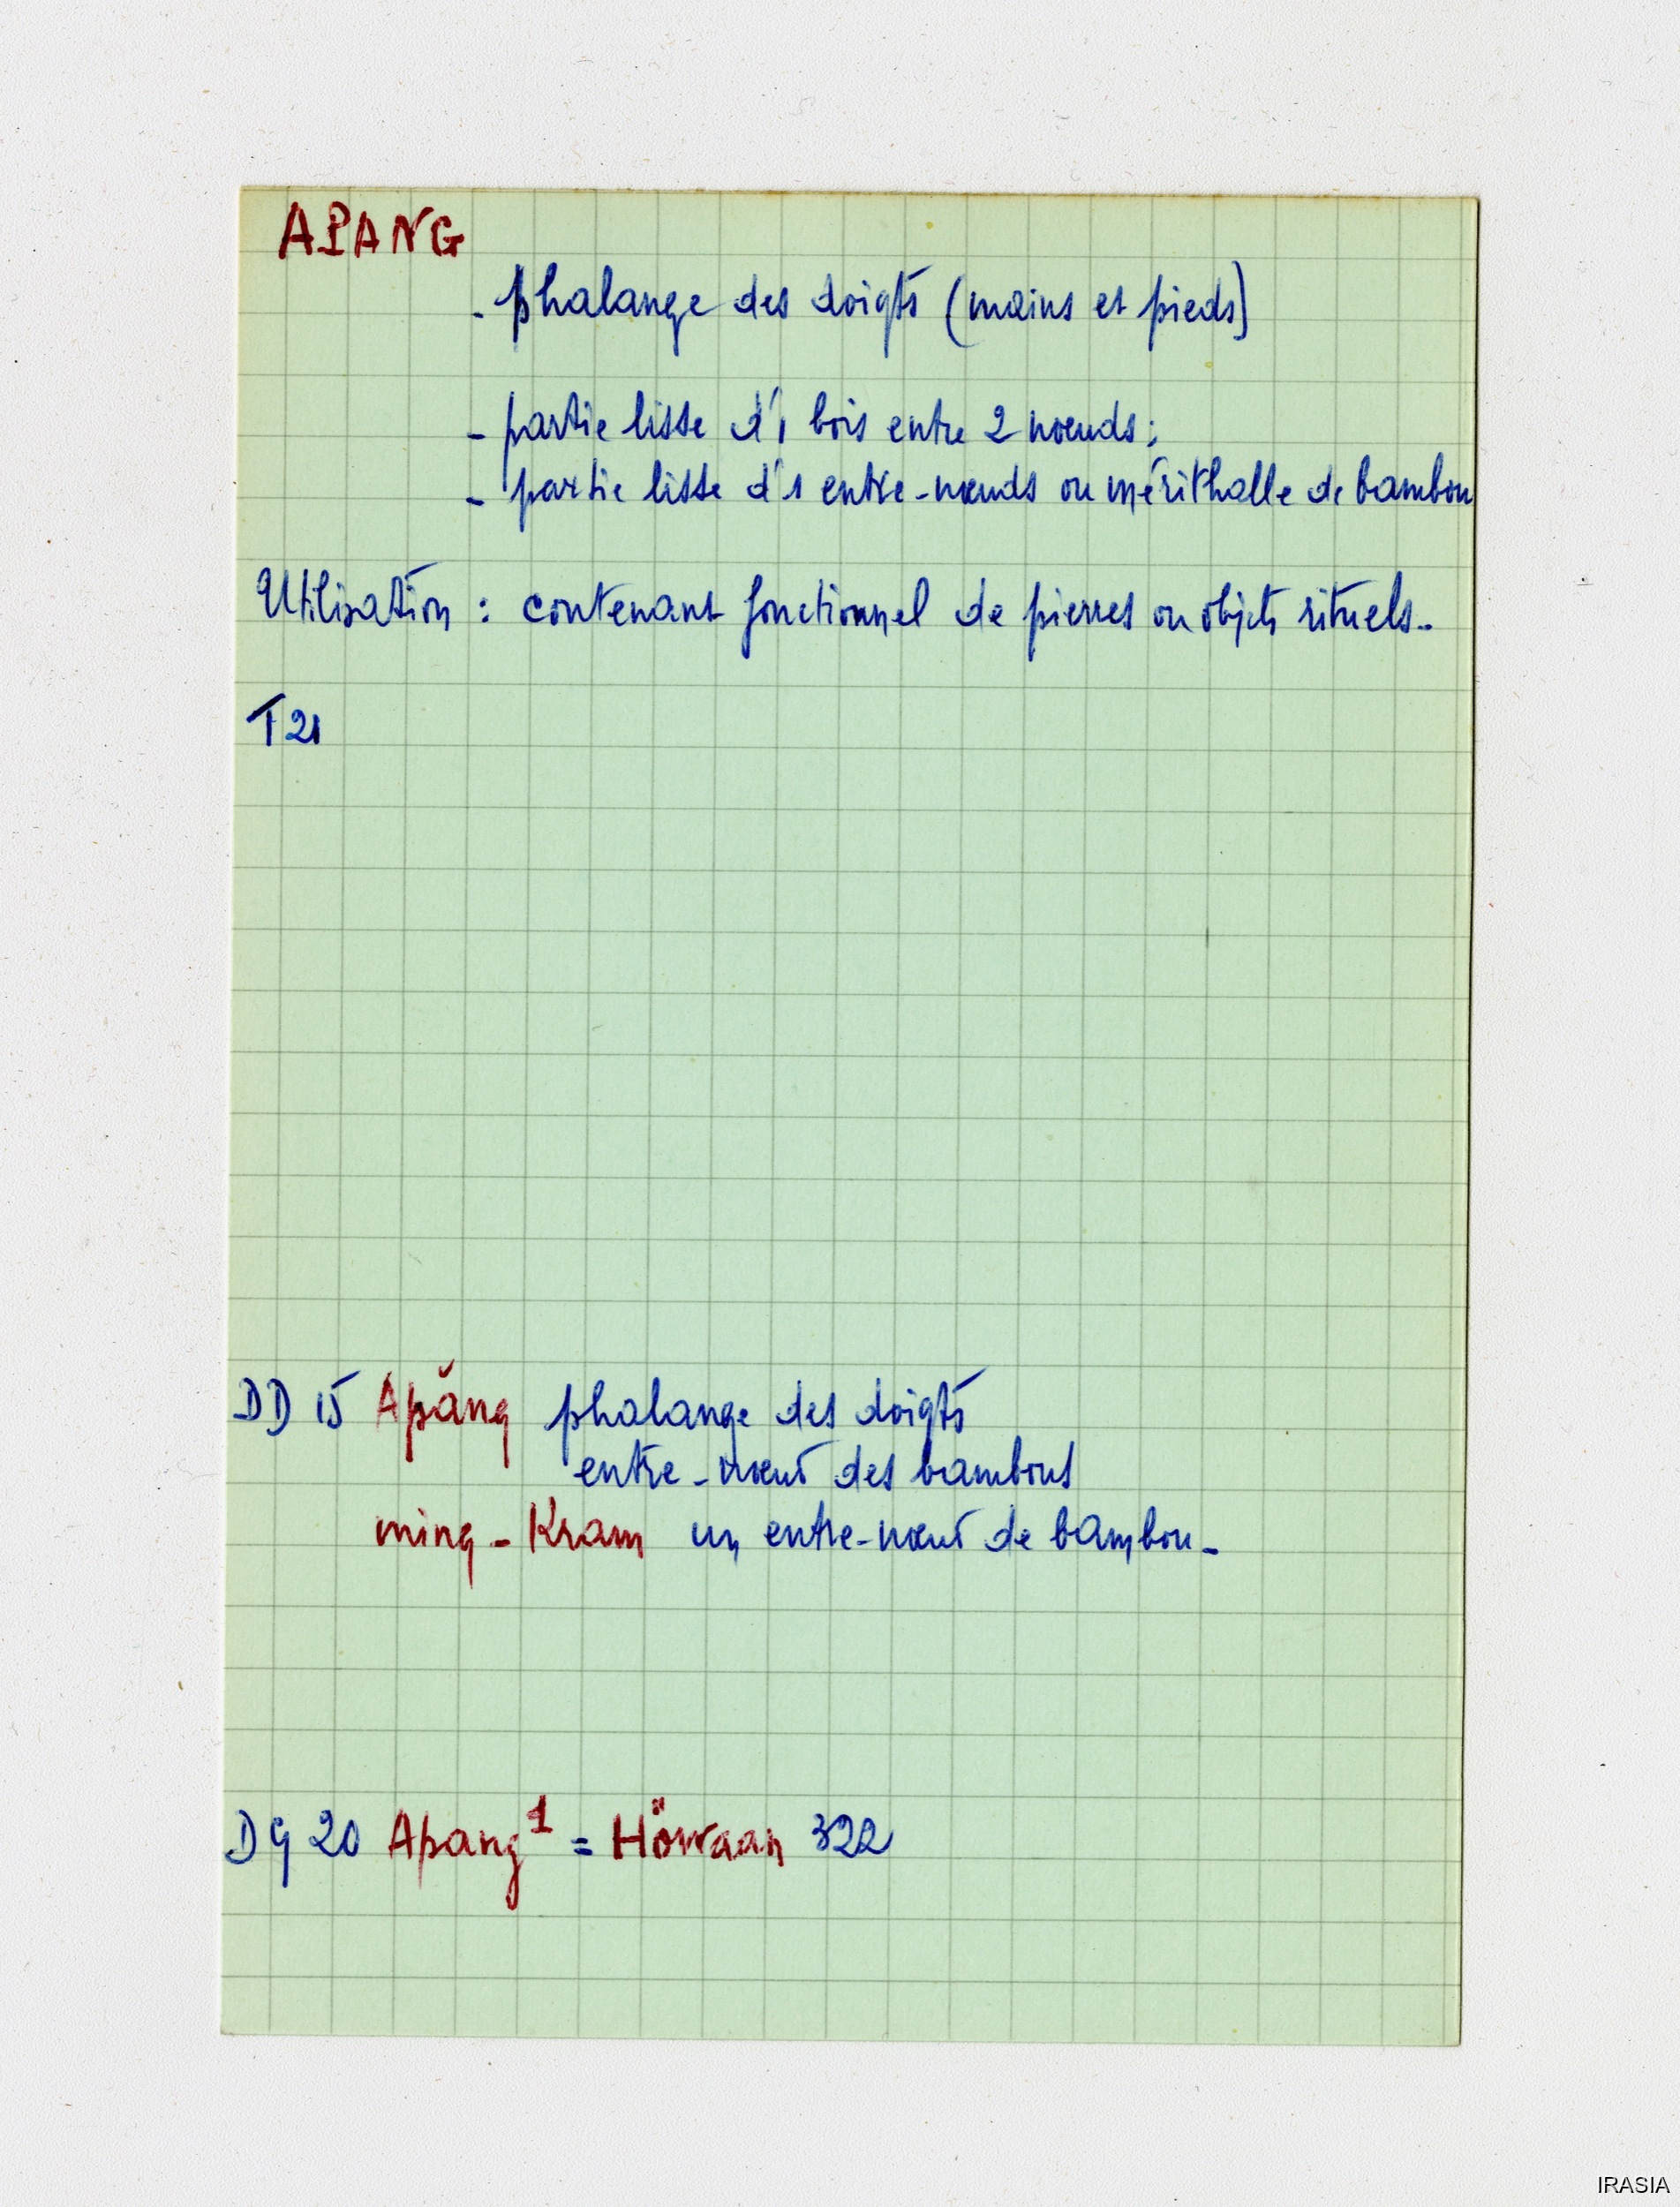 APANG
- phalange des doigts (mains et pieds)
- partie lisse d'1 bois entre 2 nœuds ;
- partie lisse d'1 entre-nœuds ou mérithalle de bambou
Utilisation : contenant fonctionnel de pierres ou objets rituels.
T21
DD 15 Apăng phalange des doigts
entre-nœud des bambous
ming - Kram un entre-nœud de bambou.
DG 20 Apang¹ = Höwaan 322
IRASIA